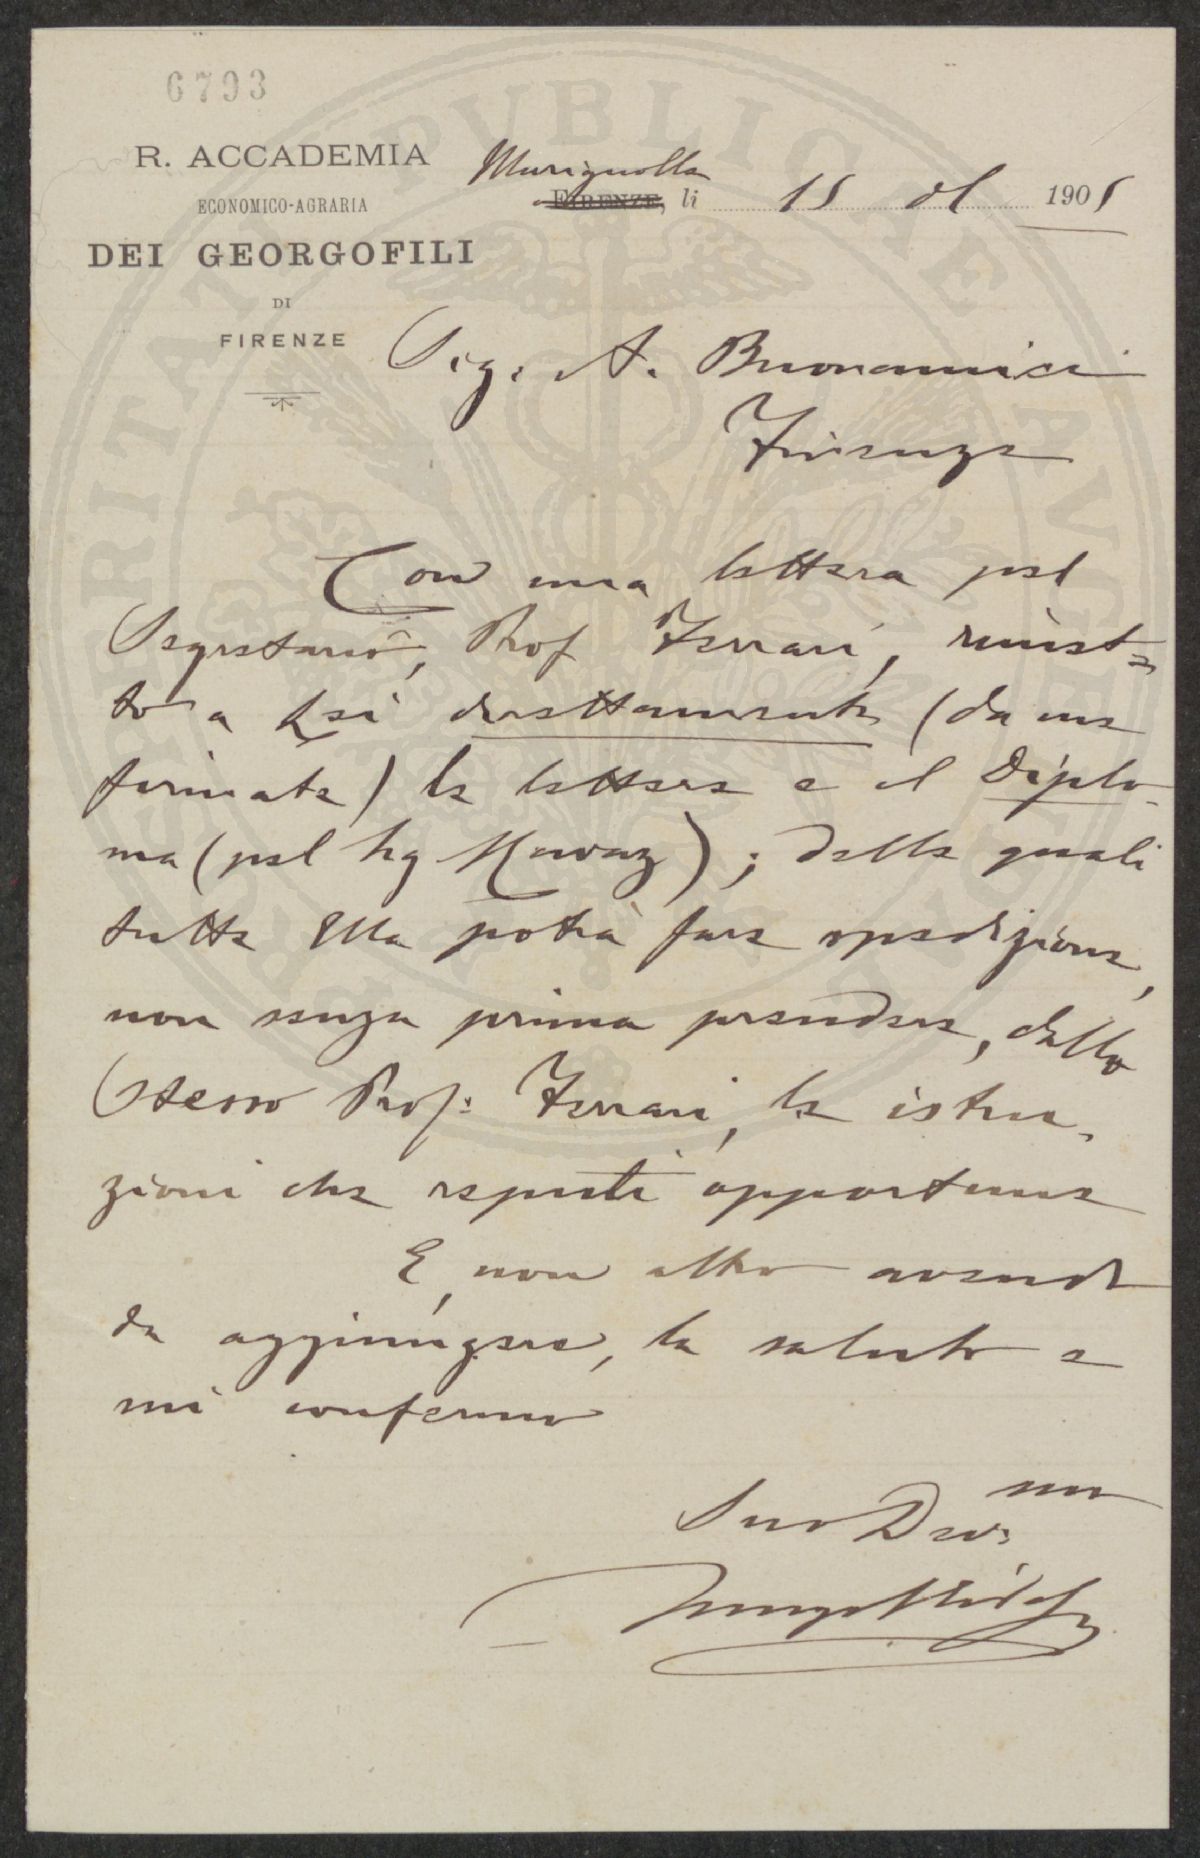 6793
R. ACCADEMIA
ECONOMICO-AGRARIA
DEI GEORGOFILI
DI
FIRENZE
Marignolla
FIRENZE, li 15 1905
Sig. A. Buonamici
Firenze
Con una lettera pel
Segretario, Prof Ferrari, rimet-
to a Lei direttamente (da me
firmate) le lettere e il Diplo-
ma (pel Sig ); delle quali
tutte Ella potrà fare spedizione,
non senza prima prendere, dallo
Stesso Prof: Ferrari, le istru-
zioni che reputi opportune
E, non altro avendo
da aggiungere, la saluto e
mi confermo
Suo Dev.mo
PROSPERITATI PVBLICAE AVGENDAE